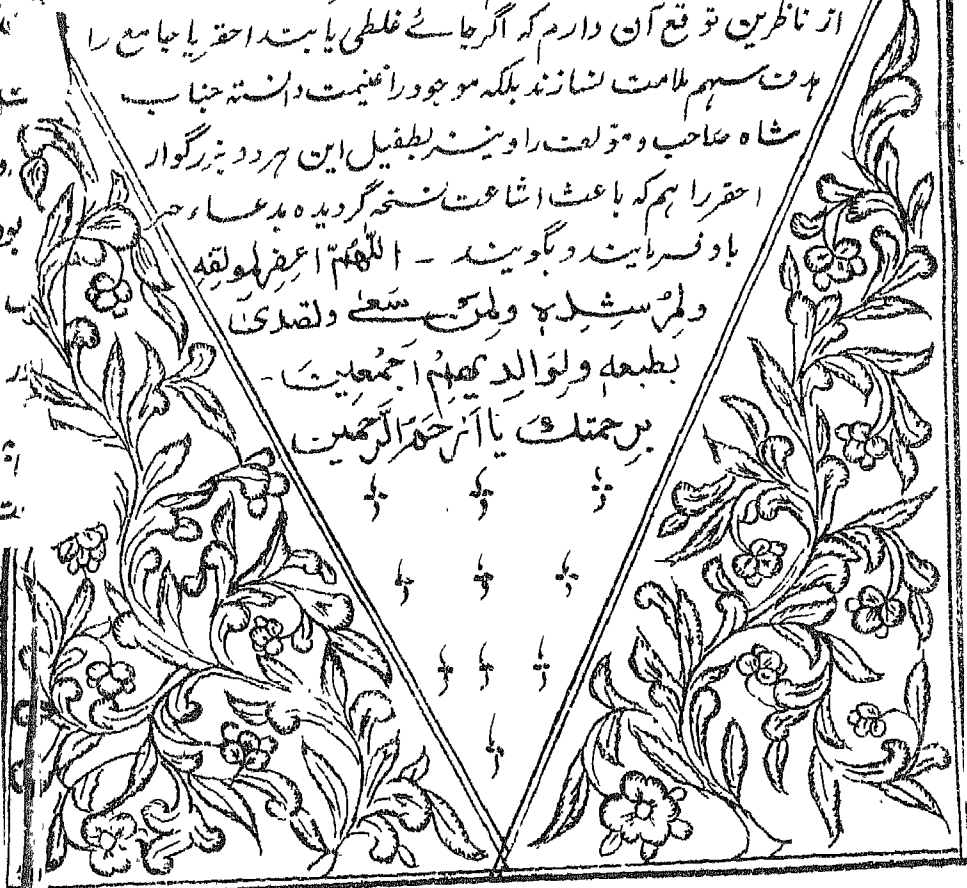 از ناظرین توقع آن دارم که اگر جائے غلطی یابند احقر یا جامع را
هدف سهم ملامت نسازند بلکه موجود را غنیمت دانسته جناب
شاه صاحب و مؤلف را و نیز بطفیل این هر دو بزرگوار
احقر را هم که باعث اشاعت نسخه گردیده بدعاء
یاد فرمایند و بگویند ـ اللّٰهُمَّ اغفر لمؤلفه
ولِمُرْشِدِهٖ ولِمَنْ سَعٰی وتصدیٰ
بطبعه ولوالدیهِمْ اَجْمَعِیْنَ ـ
بِرحمتك یا اَرْحَمَ الرّٰحِمِین